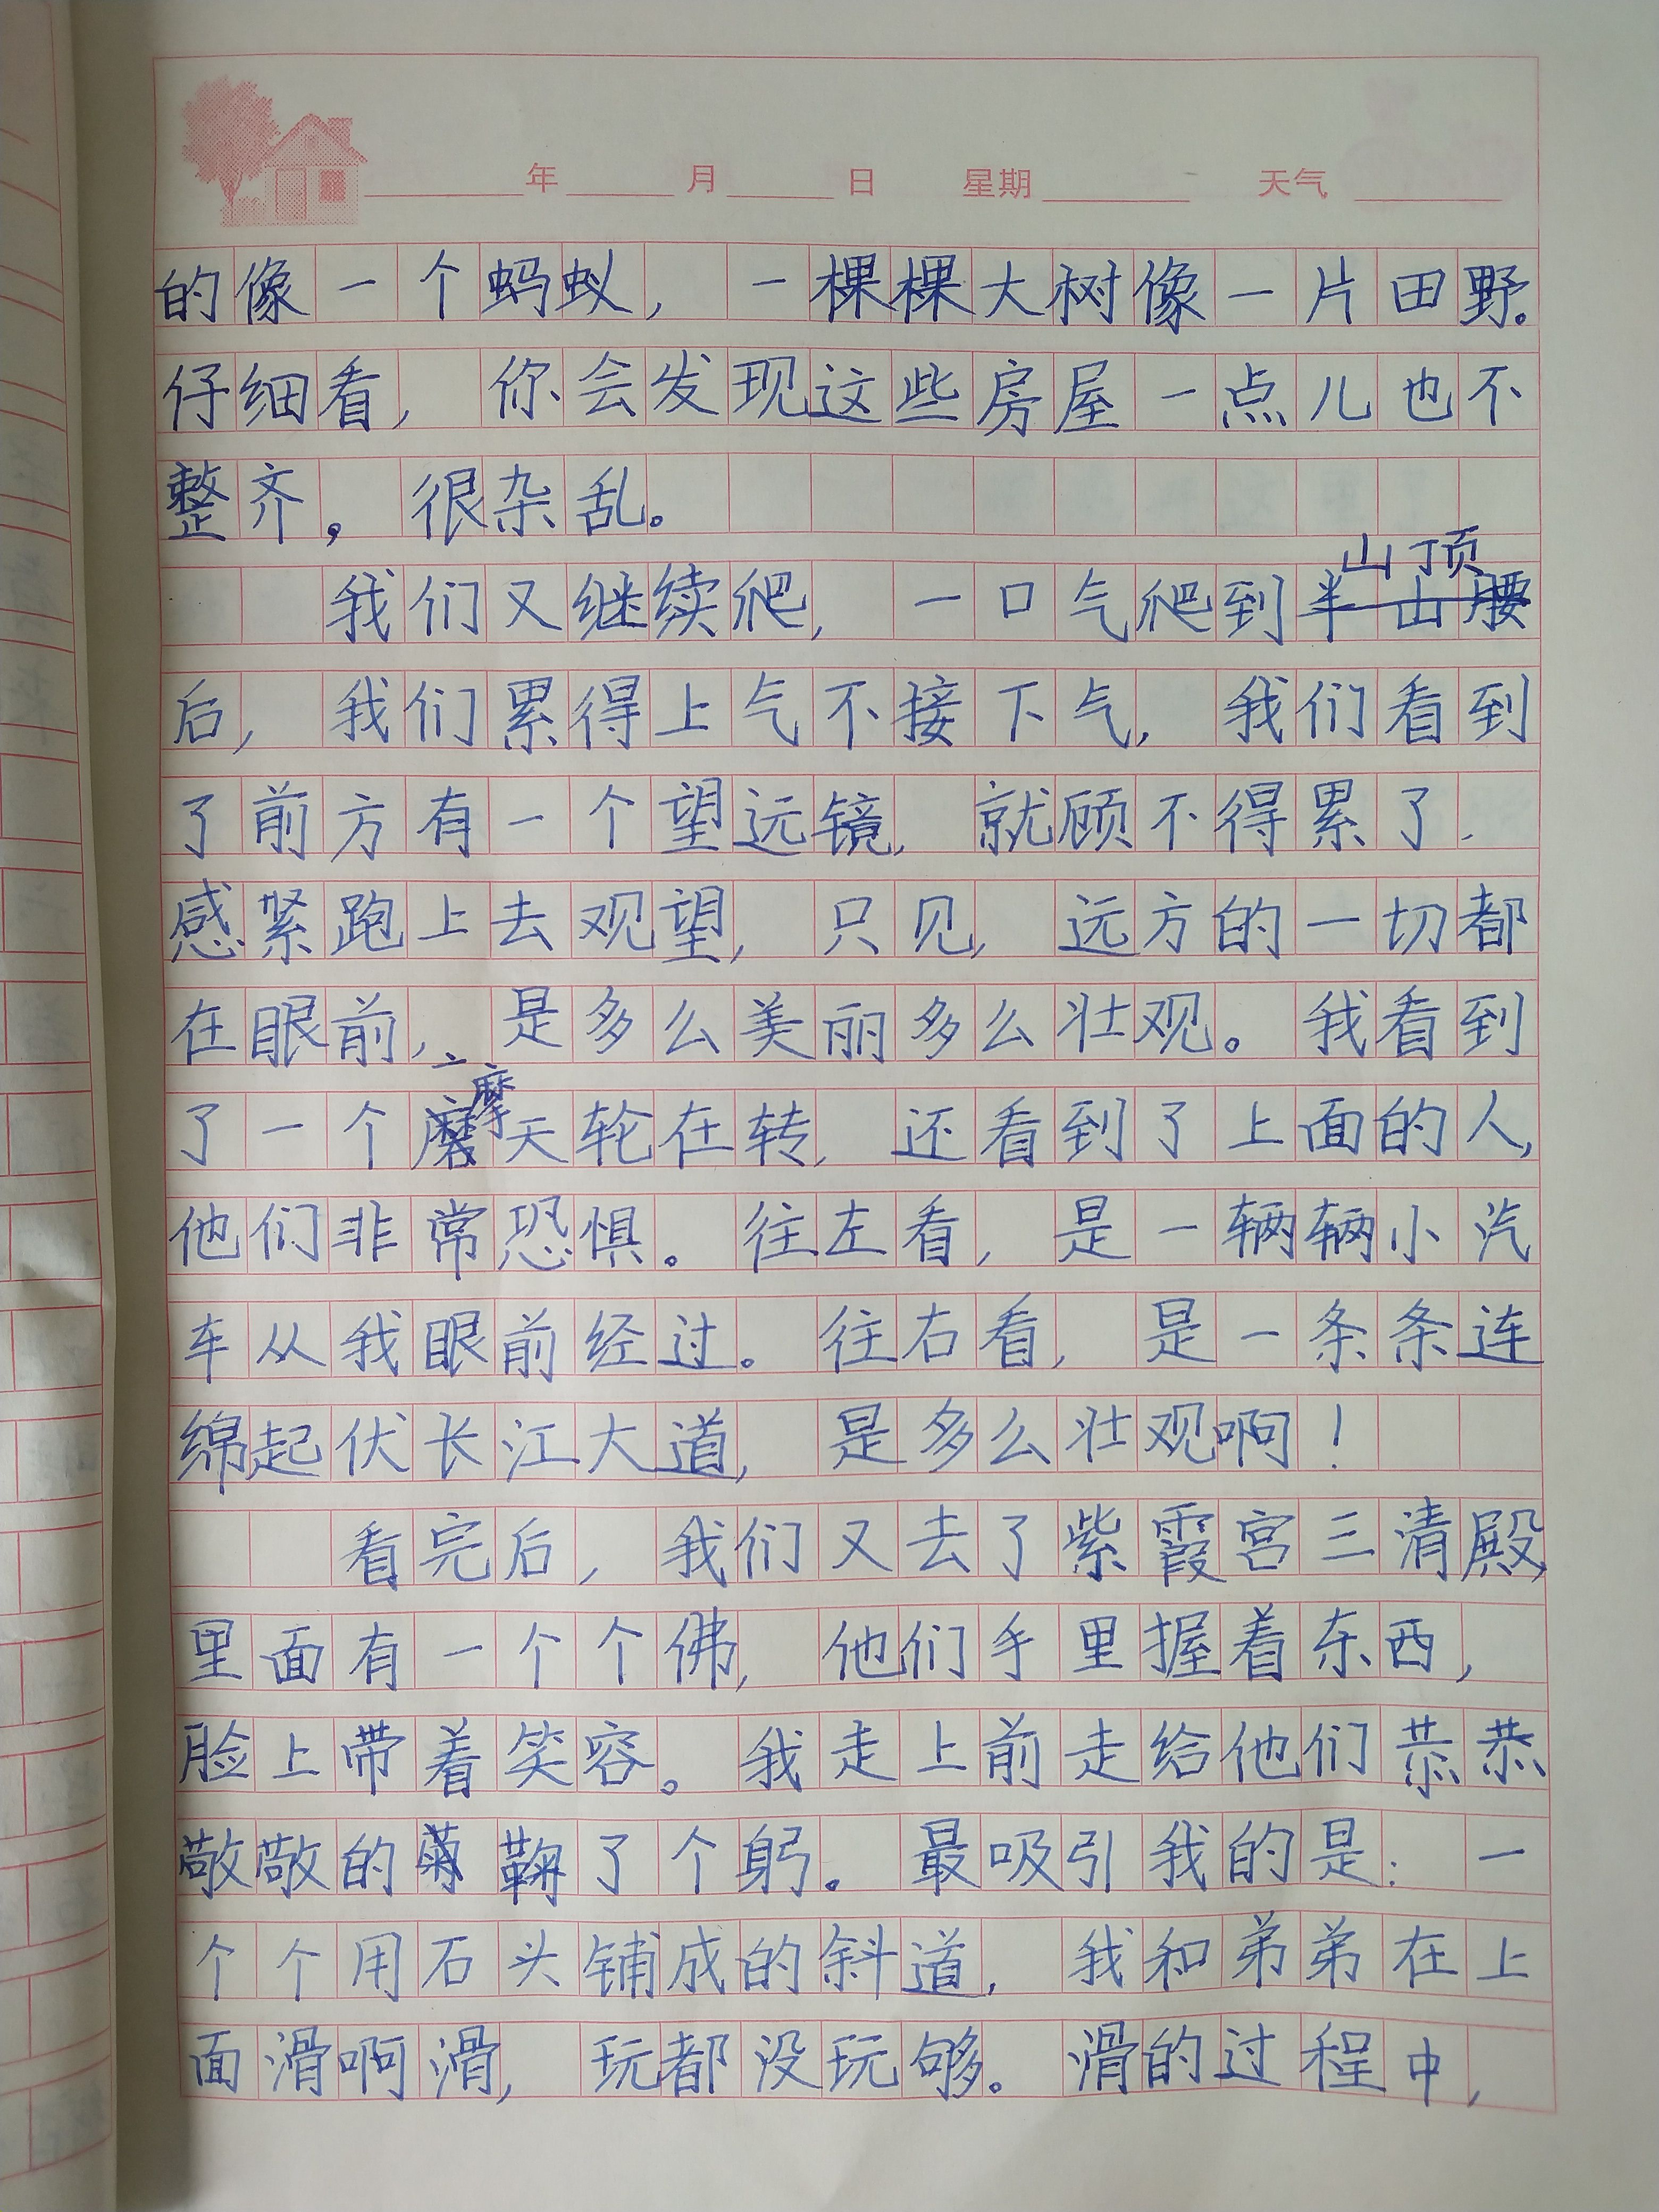 年 月 日 星期 天气
的像一个蚂蚁，一棵棵大树像一片田野。
仔细看，你会发现这些房屋一点儿也不
整齐，很杂乱。
山顶
我们又继续爬，一口气爬到半山腰
后，我们累得上气不接下气，我们看到
了前方有一个望远镜，就顾不得累了．
感紧跑上去观望，只见，远方的一切都
在眼前，是多么美丽多么壮观。我看到
摩
了一个天轮在转，还看到了上面的人，
他们非常恐惧。往左看，是一辆辆小汽
车从我眼前经过。往右看，是一条条连
绵起伏长江大道，是多么壮观啊！
看完后，我们又去了紫霞宫三清殿，
里面有一个个佛，他们手里握着东西，
脸上带着笑容。我走上前走给他们恭恭
敬敬的鞠了个躬。最吸引我的是：一
个个用石头铺成的斜道，我和弟弟在上
面滑啊滑，玩都没玩够。滑的过程中，